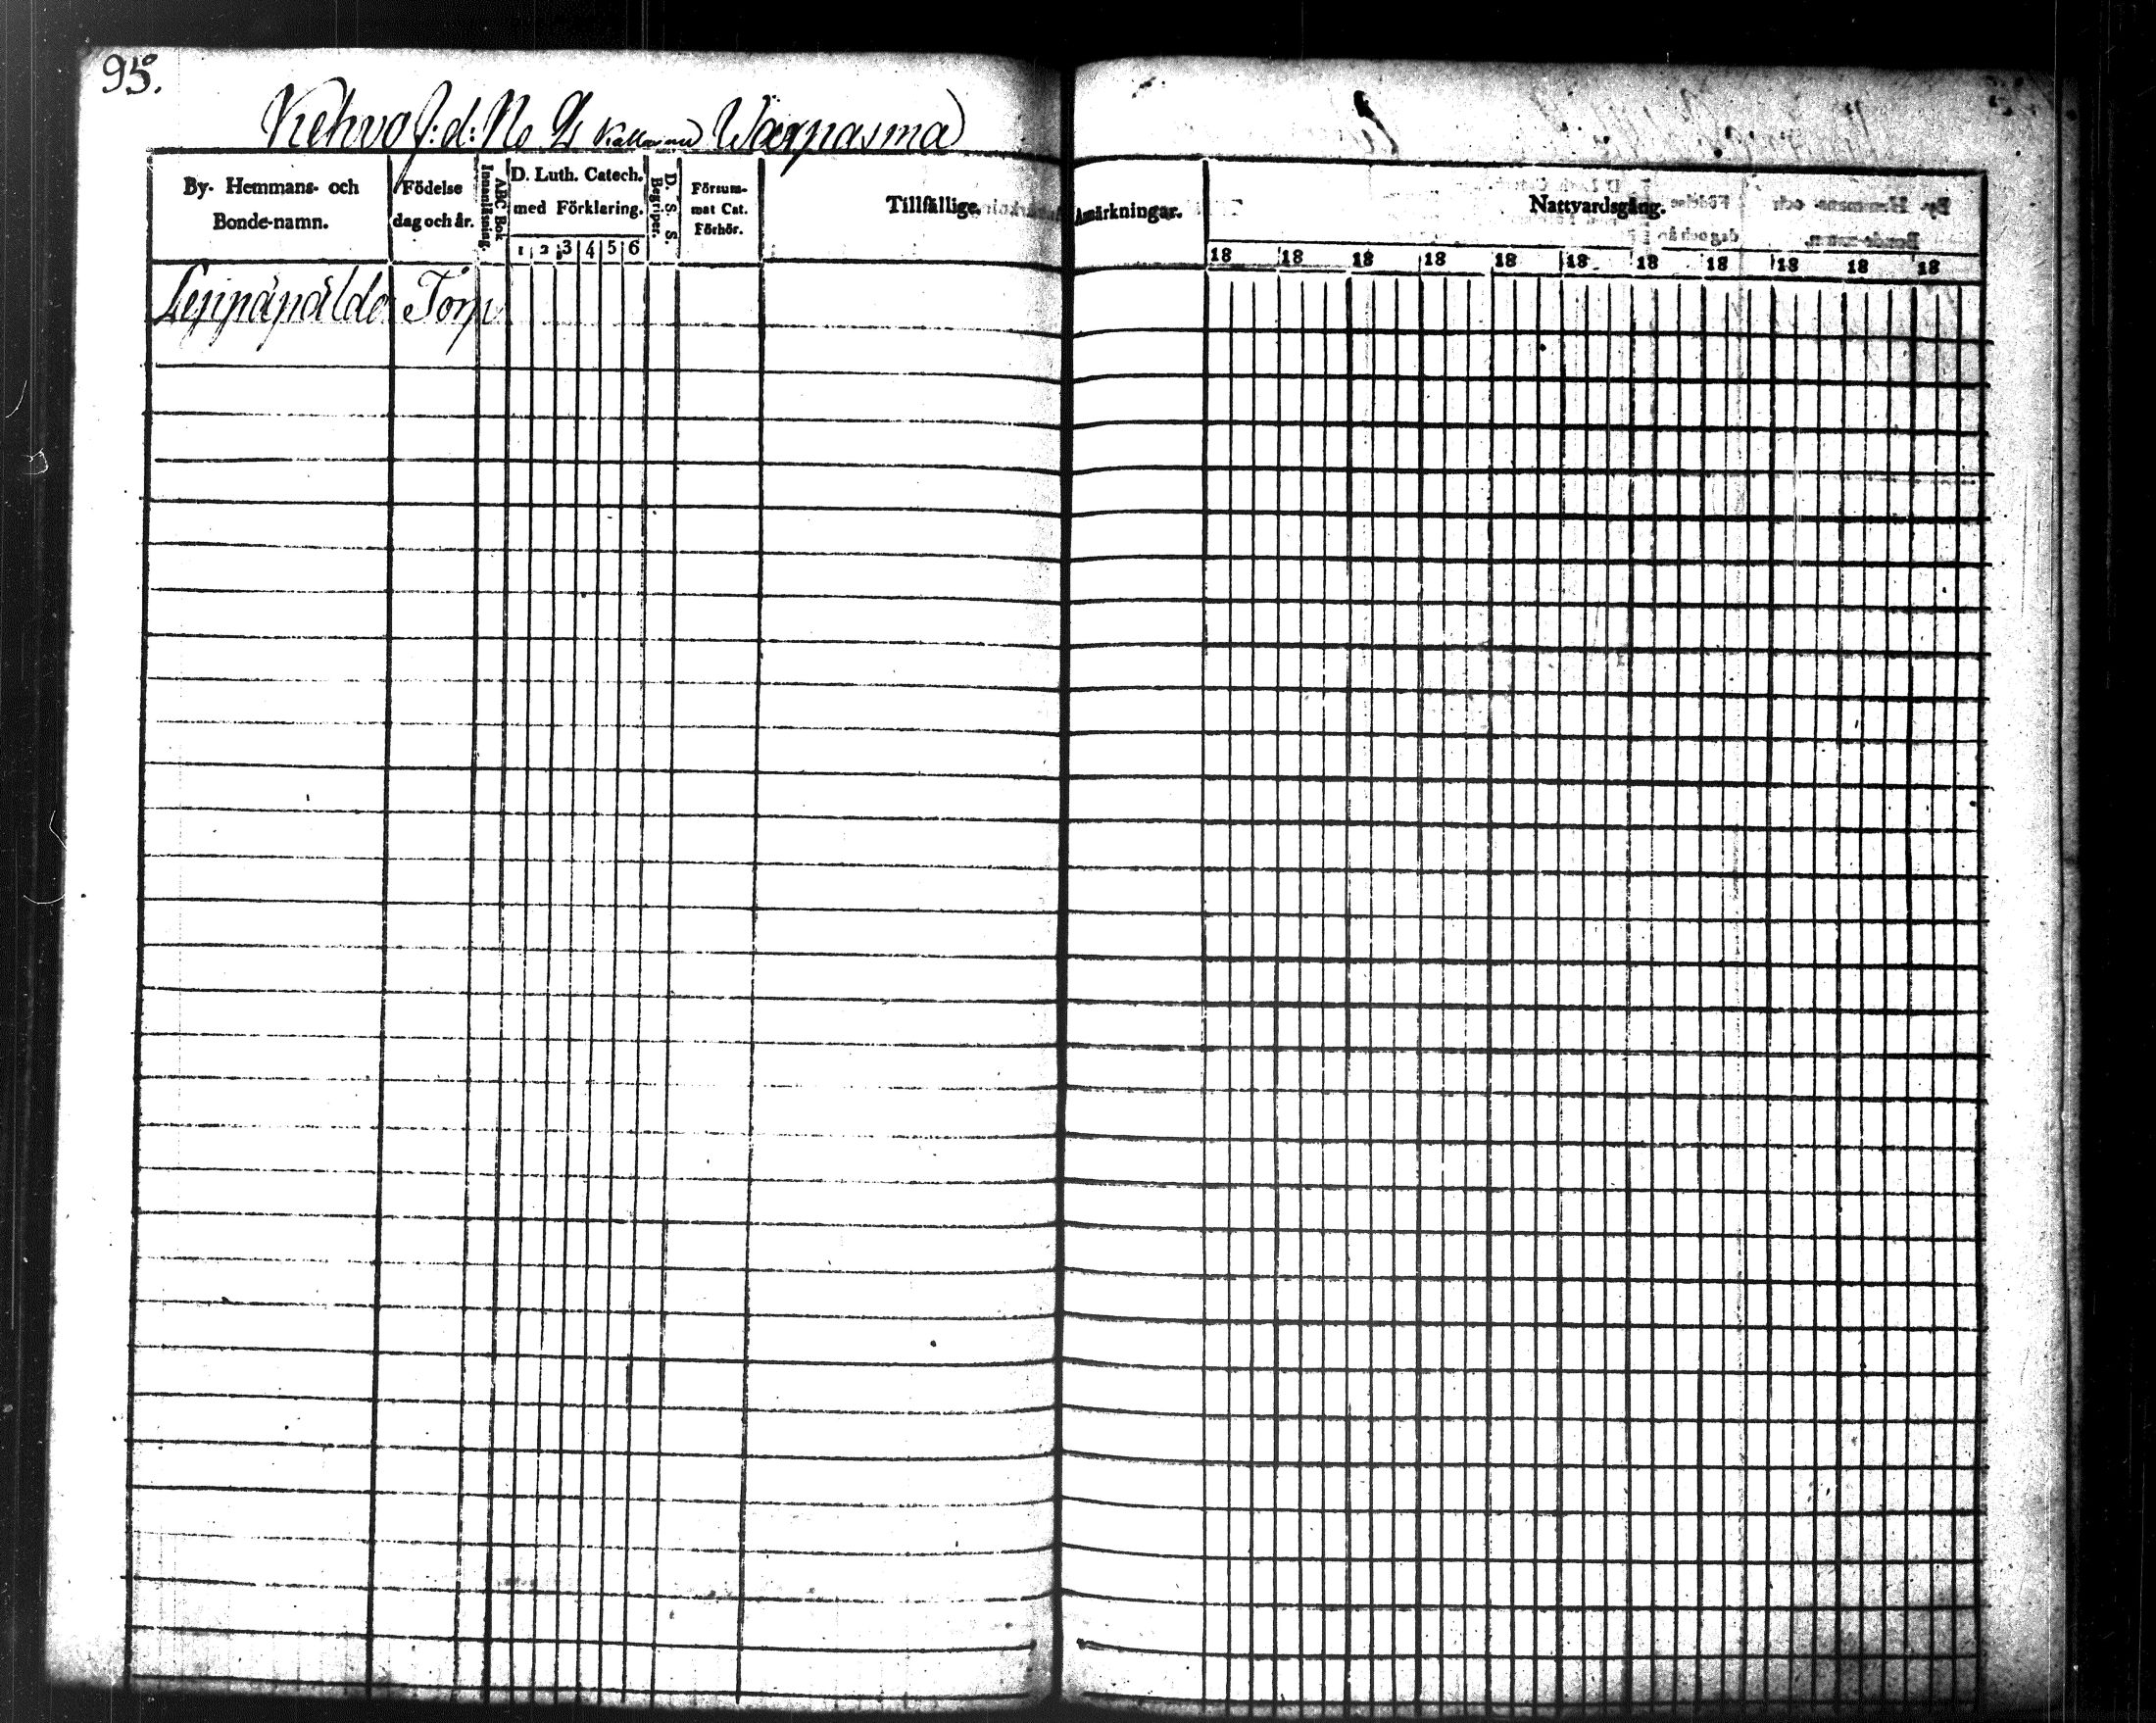 95.
Kehvo f:d: No 2 Wargasma
By- Hemmans- och Bonde-namn.
Födelse dag och år.
ABC Bok Innanläsning.
D. Luth. Catech. med Förklaring.
1 2 3 4 5 6
D. S. S. Begriper.
Försummat Cat. Förhör.
Tillfällige
Anmärkningar.
Nattvardsgång.
18 18 18 18 18 18 18 18 18 18 18
Leppäpäldo Torp